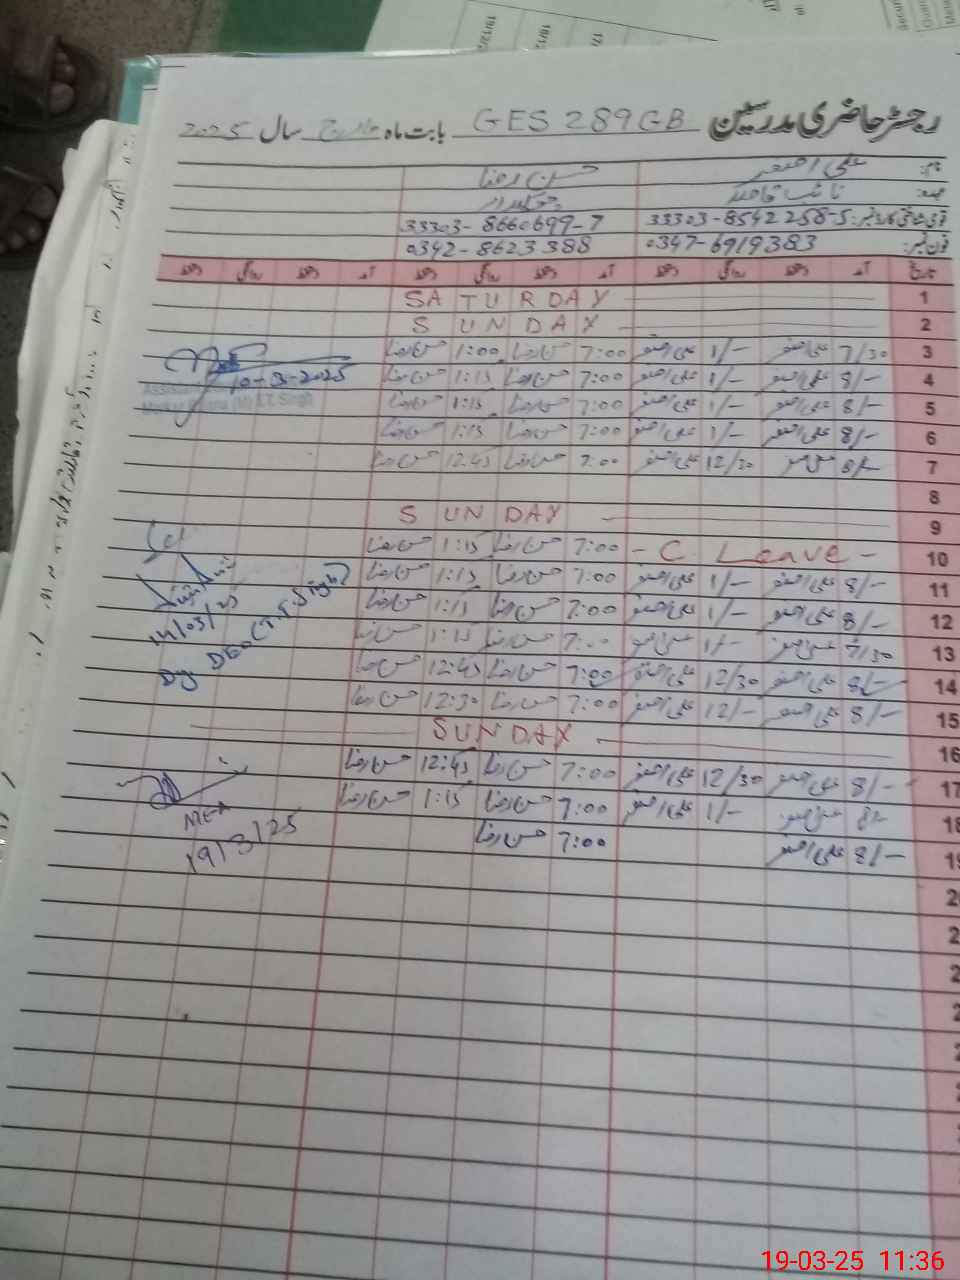 رجسٹر حاضری مدرسین GES 289GB بابت ماہ مارچ سال 2025
نام: علی اصغر حسن رضا
عہدہ: نائب قاصد چوکیدار
قومی شناختی کارڈ نمبر: 33303-8542258-5 33303-8660699-7
فون نمبر: 0347-6919383 0342-8623388
تاریخ آمد دستخط روانگی دستخط آمد دستخط روانگی دستخط آمد دستخط روانگی دستخط
1 SATURDAY
2 SUNDAY
3 7/30 علی اصغر 1/- علی اصغر 7:00 حسن رضا 1:00 حسن رضا
4 8/- علی اصغر 1/- علی اصغر 7:00 حسن رضا 1:15 حسن رضا
10-3-2025
5 8/- علی اصغر 1/- علی اصغر 7:00 حسن رضا 1:15 حسن رضا
6 8/- علی اصغر 1/- علی اصغر 7:00 حسن رضا 1:15 حسن رضا
7 8/- علی اصغر 12/30 علی اصغر 7:00 حسن رضا 12:45 حسن رضا
8
9 SUNDAY
10 - C Leave - 7:00 حسن رضا 1:15 حسن رضا
11 8/- علی اصغر 1/- علی اصغر 7:00 حسن رضا 1:15 حسن رضا
12 8/- علی اصغر 1/- علی اصغر 7:00 حسن رضا 1:15 حسن رضا
14/03/25
13 7/30 علی اصغر 1/- علی اصغر 7:00 حسن رضا 1:15 حسن رضا
Dy DEO (T.T.Singh)
14 8/- علی اصغر 12/30 علی اصغر 7:00 حسن رضا 12:45 حسن رضا
15 8/- علی اصغر 12/- علی اصغر 7:00 حسن رضا 12:30 حسن رضا
16 SUNDAY
17 8/- علی اصغر 12/30 علی اصغر 7:00 حسن رضا 12:45 حسن رضا
18 8/- علی اصغر 1/- علی اصغر 7:00 حسن رضا 1:15 حسن رضا
MEA
19/3/25
19 8/- علی اصغر 7:00 حسن رضا
19-03-25 11:36